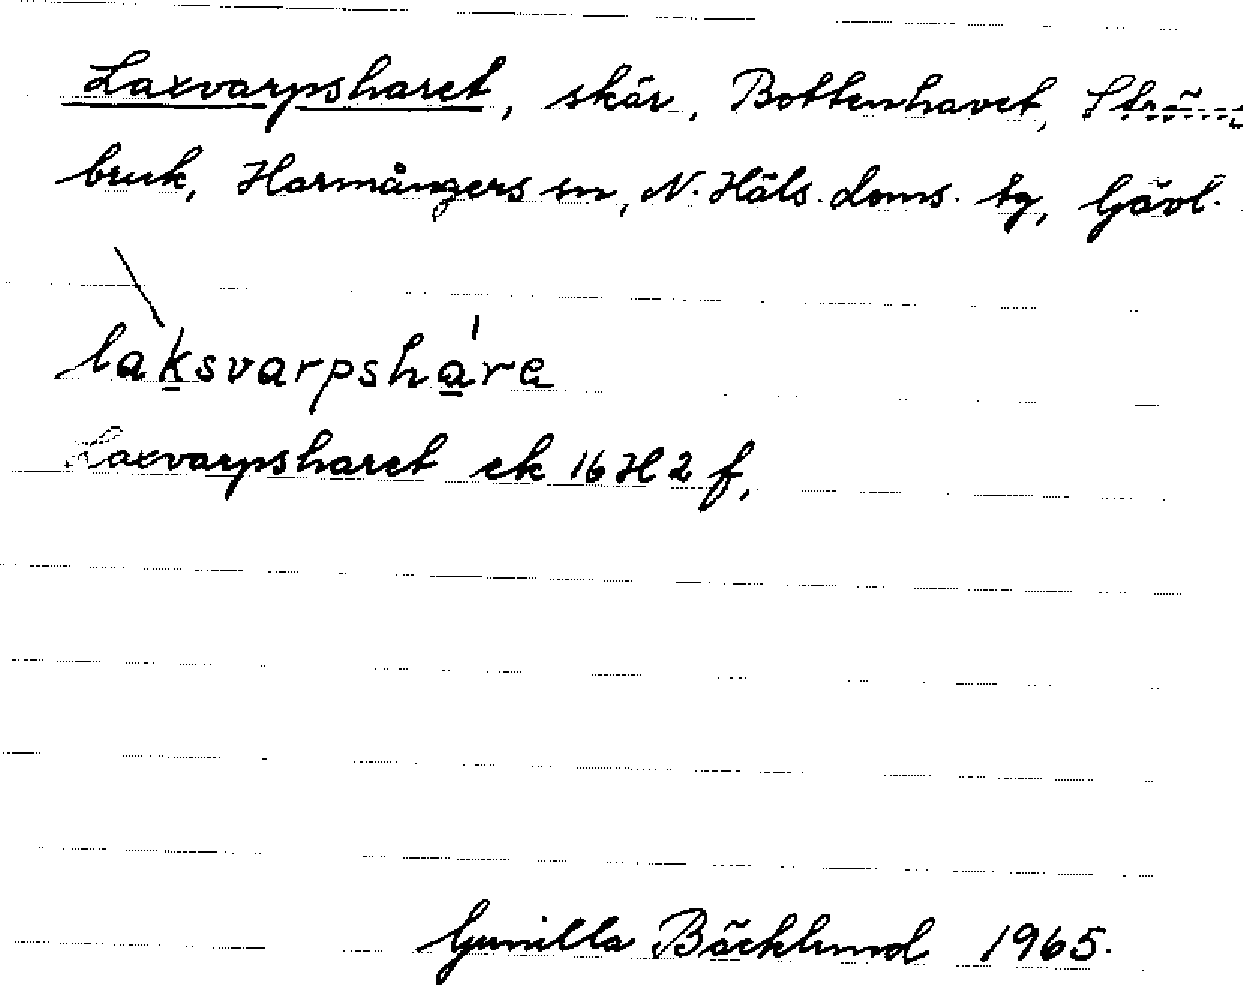 Laxvarpsharet, skär, Bottenhavet, Ströms
bruk, Harmångers sn, N. Häls. doms. tg, Gävl.
laksvarpshára
Laxvarpsharet ek 16 H 2 f,
Gunilla Bäcklund 1965.